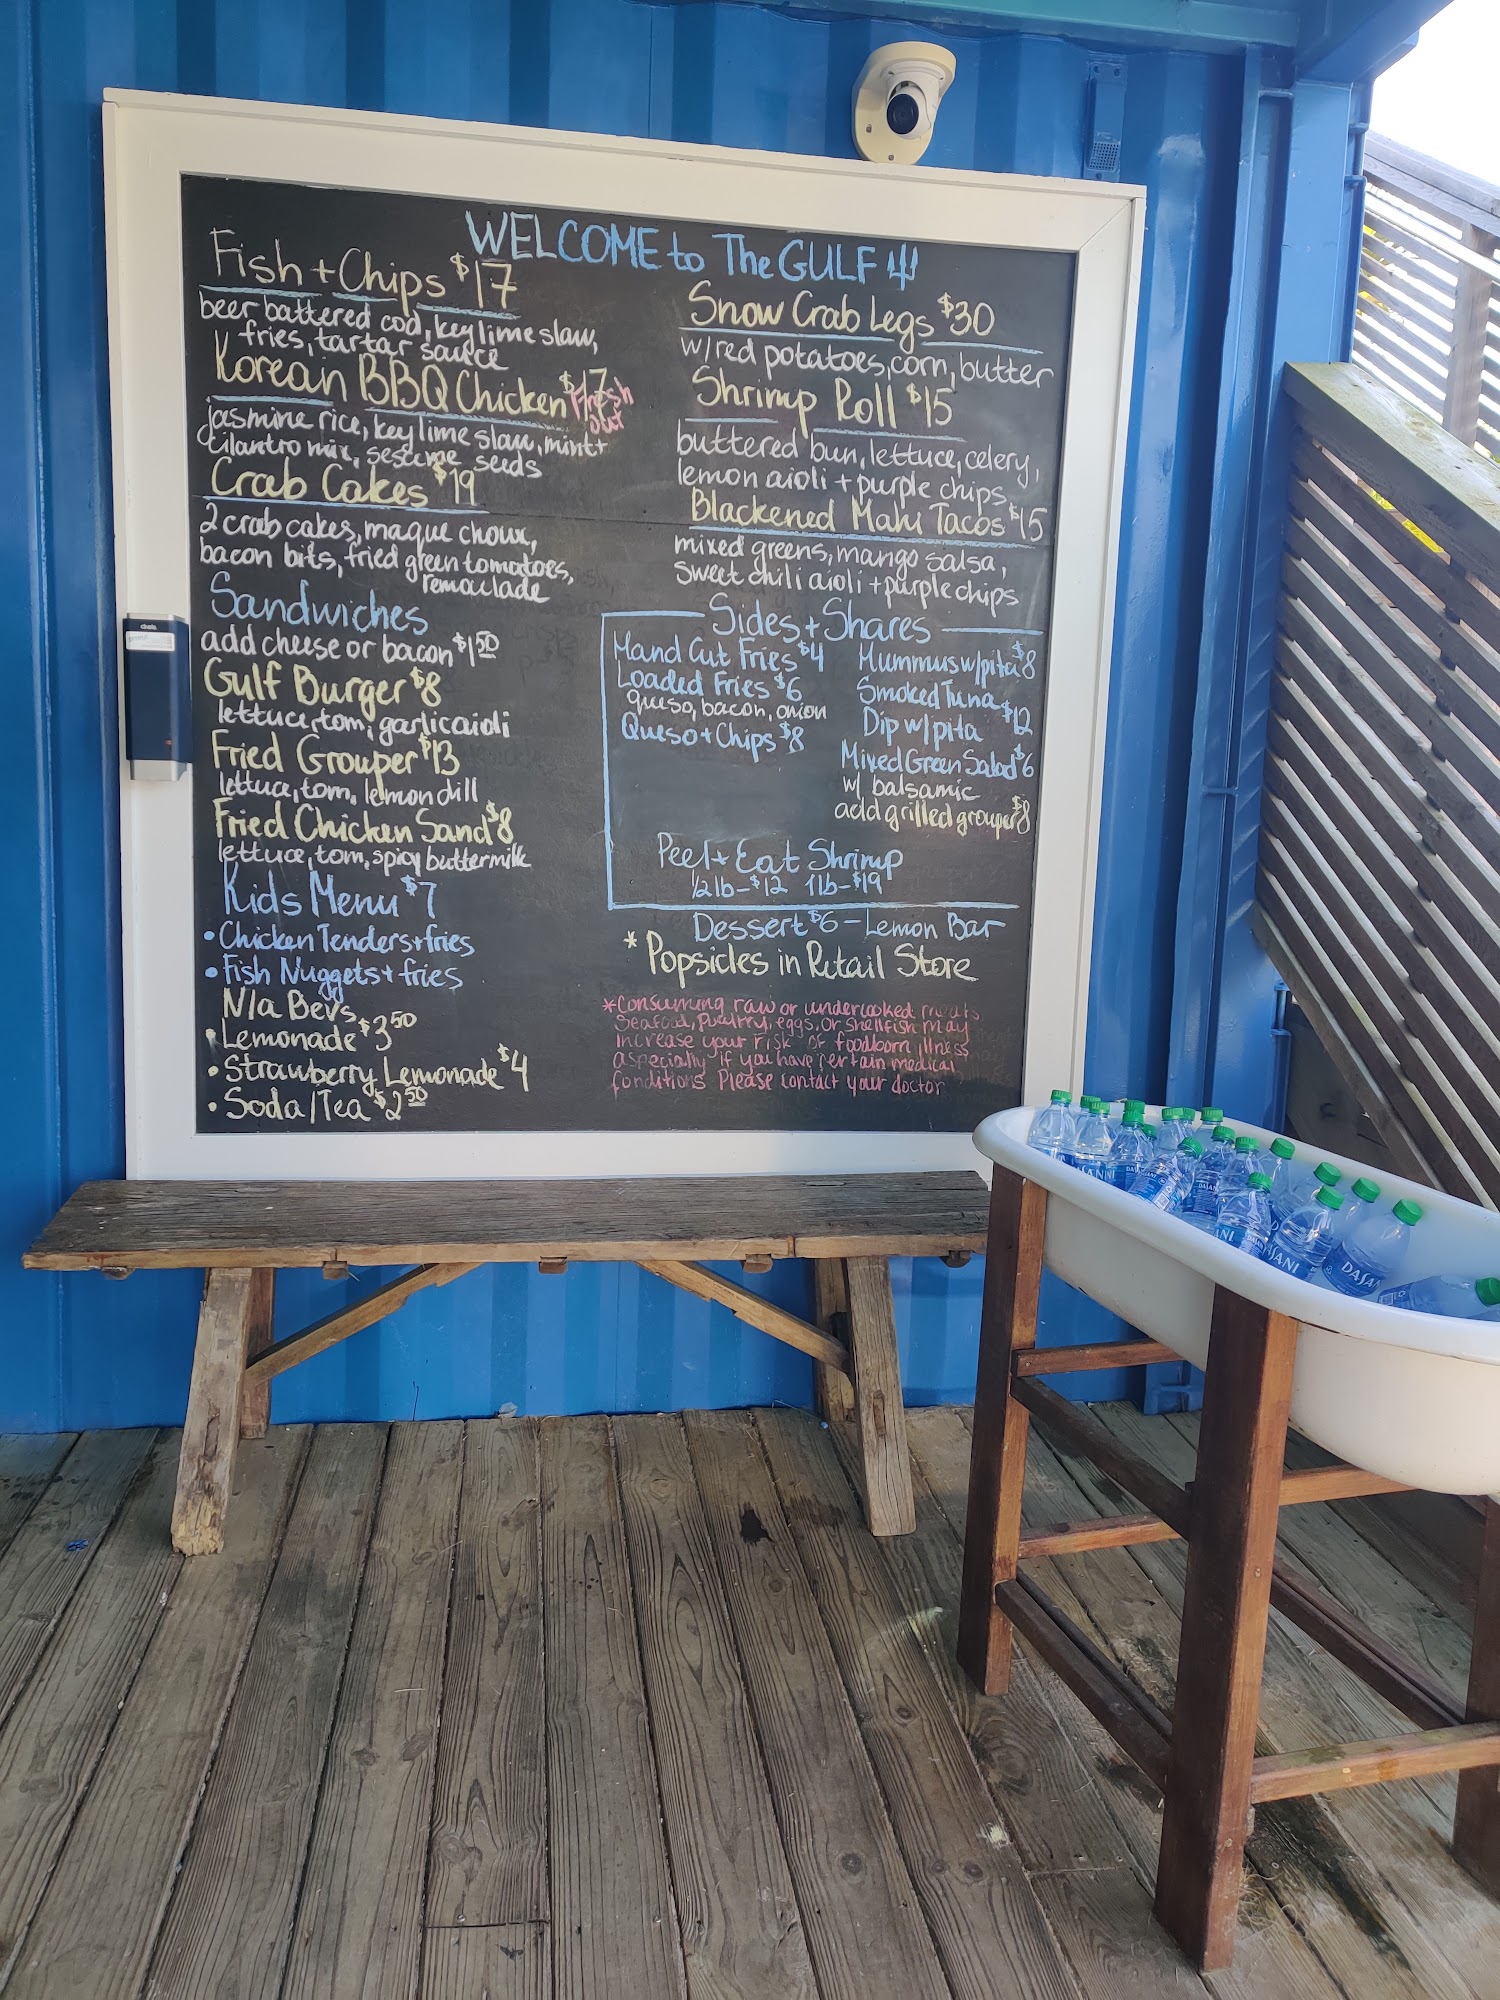 WELCOME to The GULF
Fish + Chips $17
beer battered cod, key lime slaw,
fries, tartar sauce
Korean BBQ Chicken $17
Fresh
out
jasmine rice, key lime slaw, mint +
cilantro mix, sesame seeds
Crab Cakes $19
2 crab cakes, maque choux,
bacon bits, fried green tomatoes,
remoulade
Sandwiches
add cheese or bacon $1 50
Gulf Burger $8
lettuce, tom, garlic aioli
Fried Grouper $13
lettuce, tom, lemon dill
Fried Chicken Sand $8
lettuce, tom, spicy buttermilk
Kids Menu $7
• Chicken Tenders + fries
• Fish Nuggets + fries
N/a Bevs
• Lemonade $3 50
• Strawberry Lemonade $4
• Soda/Tea $2 50
Snow Crab Legs $30
w/red potatoes, corn, butter
Shrimp Roll $15
buttered bun, lettuce, celery,
lemon aioli + purple chips
Blackened Mahi Tacos $15
mixed greens, mango salsa,
sweet chili aioli + purple chips
Sides + Shares
Hand Cut Fries $4
Loaded Fries $6
queso, bacon, onion
Queso + Chips $8
Hummus w/pita $8
Smoked Tuna
Dip w/pita $12
Mixed Green Salad $6
w/ balsamic
add grilled grouper $8
Peel + Eat Shrimp
1/2 lb - $12 1 lb - $19
Dessert $6 - Lemon Bar
* Popsicles in Retail Store
*Consuming raw or undercooked meats
Seafood, Poultry, eggs, or shellfish may
increase your risk of foodborn illness
aspecially if you have certain medical
conditions Please contact your doctor
DASANI
DASANI
DASANI